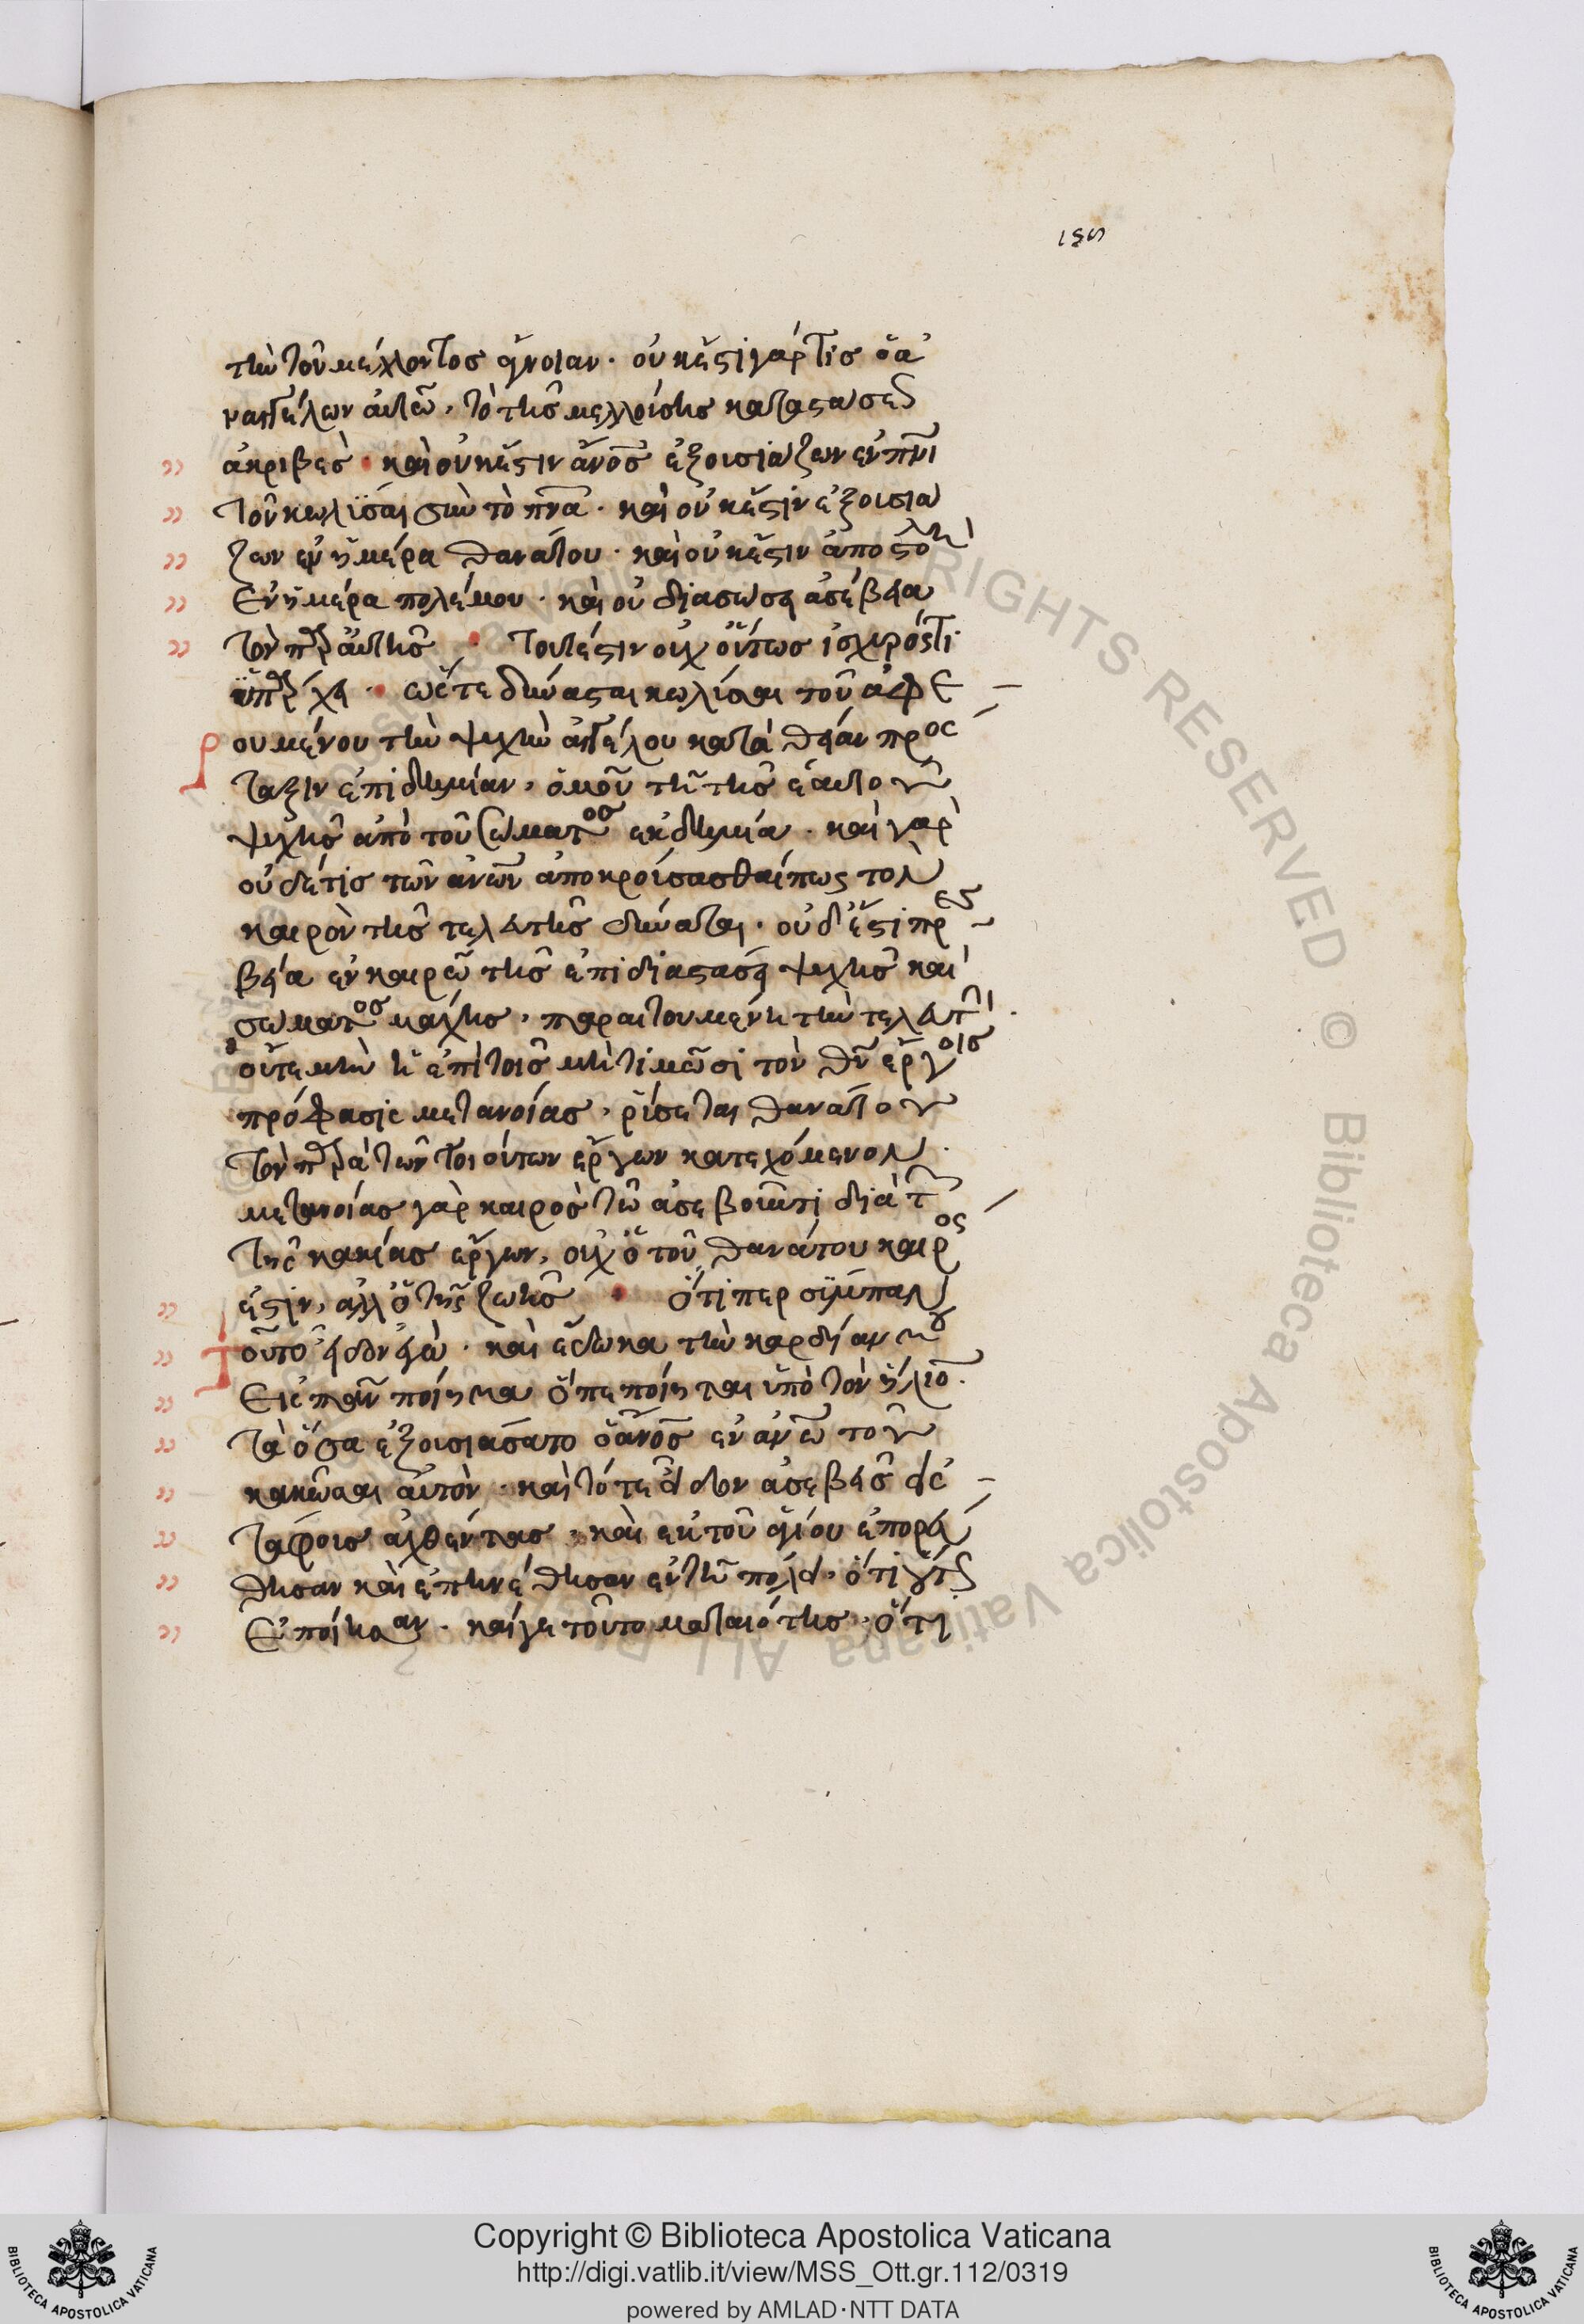 τὴν τοῦ μέλλοντος ἄγνοιαν. οὐκ ἔστι γάρ τις ὁ ἀ
ναγγέλων αὐτῶ, τὸ τῆς μελλούσης καταστάσεως
ἀκριβές. καὶ οὐκ ἔστιν ἄνος ἐξουσιάζων ἐν πνι
τοῦ κωλῦσαι σὺν τὸ πνα. καὶ οὐκ ἔστιν ἐξουσιά
ζων ἐν ἡμέρα θανάτου. καὶ οὐκ ἔστιν ἀποστολὴ
ἐν ἡμέρα πολέμου. καὶ οὐ διασώσει ἀσέβεια
τὸν παρ' αὐτῆς. τουτέστιν οὐχ οὕτως ἰσχυρός τι
ὑπάρχει. ὥστε δύνασθαι κωλῦσαι τοῦ ἀφε
ρουμένου τὴν ψυχὴν ἀγγέλου κατὰ θείαν πρός
ταξιν ἐπιδημίαν, ὁμοῦ τῆ τῆς ἑαυτοῦ
ψυχῆς ἀπὸ τοῦ σώματος ἐκδημία. καὶ γὰρ
οὐδέ τις τῶν ἀνων ἀποκρούσασθαί πως τὸν
καιρὸν τῆς τελευτῆς δύναται. οὐδ' ἔστι πρεσ
βεία ἐν καιρῶ τῆς ἐπὶ διαστάσει ψυχῆς καὶ
σώματος μάχης, παραιτουμένη τὴν τελευτήν.
οὔτε μὴν ἡ ἐπὶ τοῖς μὴ τιμῶσι τὸν θν ἔργοις
πρόφασις μετανοίας, ῥύσεται θανάτου
τὸν παρὰ τῶν τοιούτων ἔργων κατεχόμενον.
μετανοίας γὰρ καιρὸς τῶ ἀσεβοῦντι διὰ τῶν
τῆς κακίας ἔργων, οὐχ ὁ τοῦ θανάτου καιρός
ἐστιν, ἀλλ' ὁ τῆς ζωῆς. ὅτιπερ σύμπαν
τοῦτο εἶδον ἐγώ. καὶ ἔδωκα τὴν καρδίαν μου
εἰς πᾶν ποίημα ὃ πεποίηται ὑπὸ τὸν ἥλιον.
τὰ ὅσα ἐξουσιάσατο ὁ ἄνος ἐν ἀνω τοῦ
κακῶσαι αὐτόν. καὶ τότε εἶδον ἀσεβεῖς εἰς
τάφους ἀχθέντας, καὶ ἐκ τοῦ ἁγίου ἐπορεύ
θησαν καὶ ἐπηνέθησαν ἐν τῆ πόλει, ὅτι οὕτως
ἐποίησαν. καί γε τοῦτο ματαιότης, ὅτι
Copyright © Biblioteca Apostolica Vaticana
http://digi.vatlib.it/view/MSS_Ott.gr.112/0319
powered by AMLAD·NTT DATA